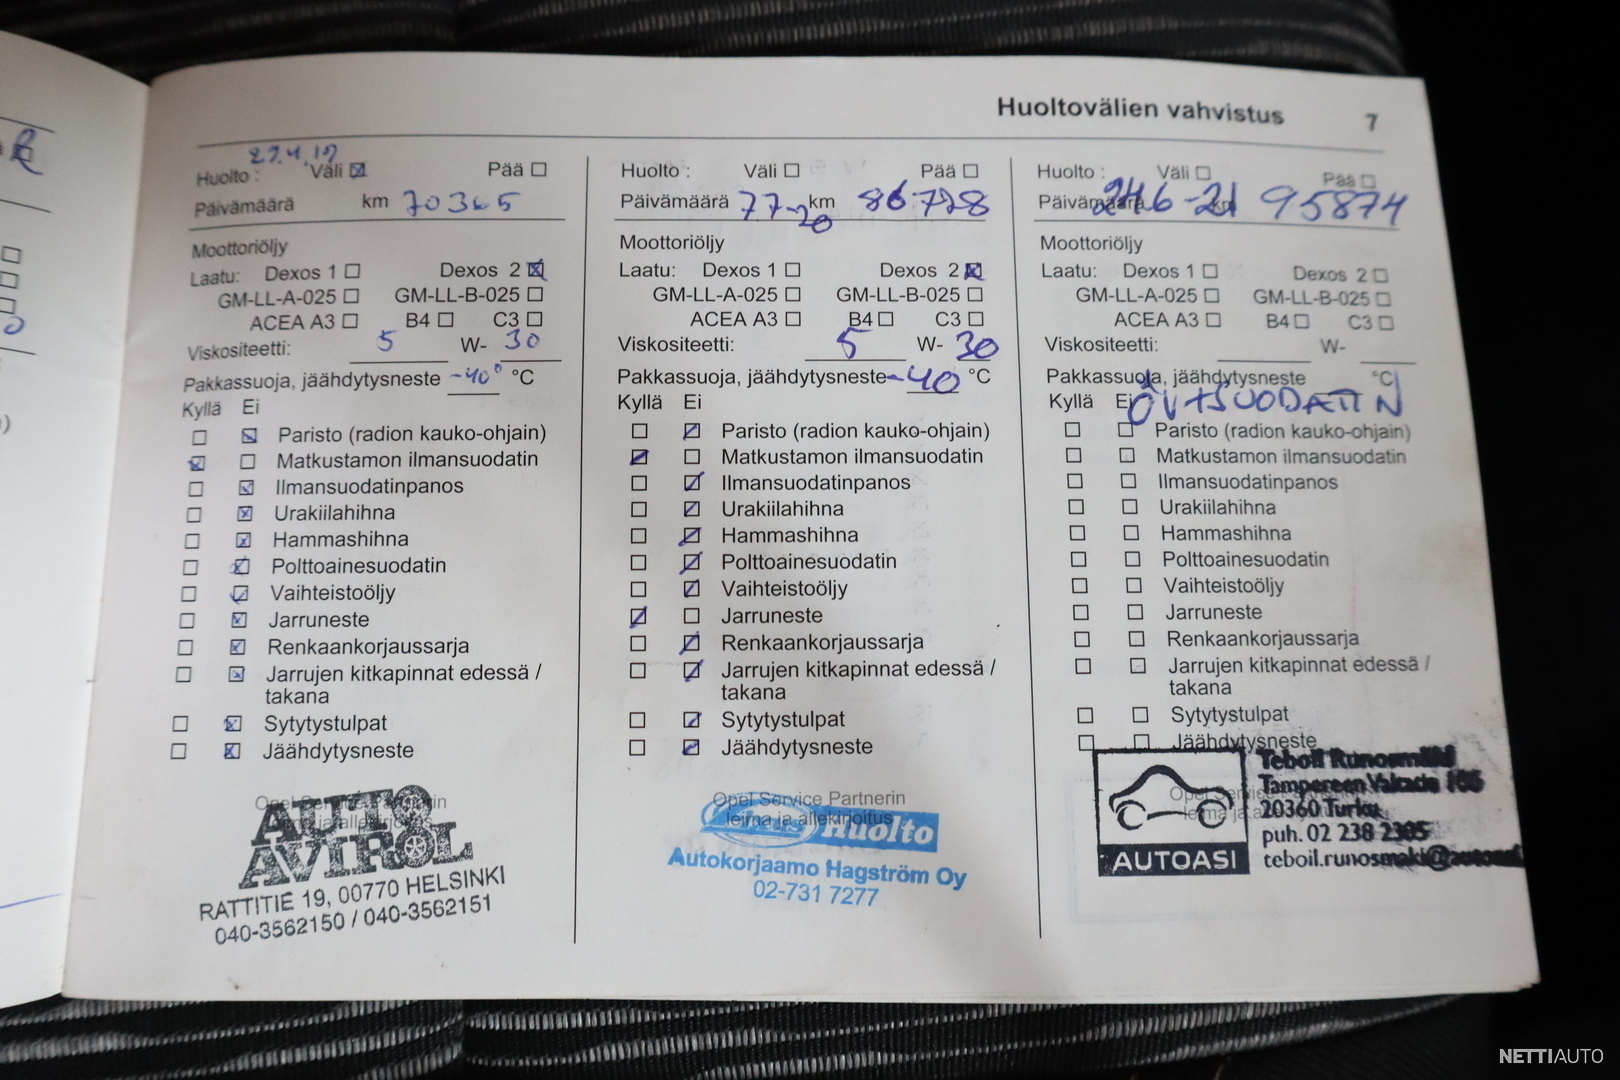 Huoltovälien vahvistus 7
27.4.19
Huolto : Väli ☒ Pää ☐
Päivämäärä km 70365
Moottoriöljy
Laatu: Dexos 1 ☐ Dexos 2 ☒
GM-LL-A-025 ☐ GM-LL-B-025 ☐
ACEA A3 ☐ B4 ☐ C3 ☐
Viskositeetti: 5 W- 30
Pakkassuoja, jäähdytysneste -40° °C
Kyllä Ei
☐ ☒ Paristo (radion kauko-ohjain)
☒ ☐ Matkustamon ilmansuodatin
☐ ☒ Ilmansuodatinpanos
☐ ☒ Urakiilahihna
☐ ☒ Hammashihna
☐ ☒ Polttoainesuodatin
☐ ☒ Vaihteistoöljy
☐ ☒ Jarruneste
☐ ☒ Renkaankorjaussarja
☐ ☒ Jarrujen kitkapinnat edessä /
takana
☐ ☒ Sytytystulpat
☐ ☒ Jäähdytysneste
Opel Service Partnerin
leima ja allekirjoitus
AUTO
AVIROL
RATTITIE 19, 00770 HELSINKI
040-3562150 / 040-3562151
Huolto : Väli ☐ Pää ☐
Päivämäärä 77-20 km 86778
Moottoriöljy
Laatu: Dexos 1 ☐ Dexos 2 ☒
GM-LL-A-025 ☐ GM-LL-B-025 ☐
ACEA A3 ☐ B4 ☐ C3 ☐
Viskositeetti: 5 W- 30
Pakkassuoja, jäähdytysneste -40 °C
Kyllä Ei
☐ ☒ Paristo (radion kauko-ohjain)
☒ ☐ Matkustamon ilmansuodatin
☐ ☒ Ilmansuodatinpanos
☐ ☒ Urakiilahihna
☐ ☒ Hammashihna
☐ ☒ Polttoainesuodatin
☐ ☒ Vaihteistoöljy
☒ ☐ Jarruneste
☐ ☒ Renkaankorjaussarja
☐ ☒ Jarrujen kitkapinnat edessä /
takana
☐ ☒ Sytytystulpat
☐ ☒ Jäähdytysneste
Opel Service Partnerin
leima ja allekirjoitus
Huolto
Autokorjaamo Hagström Oy
02-731 7277
Huolto : Väli ☐ Pää ☐
Päivämäärä 24.6-21 km 95874
Moottoriöljy
Laatu: Dexos 1 ☐ Dexos 2 ☐
GM-LL-A-025 ☐ GM-LL-B-025 ☐
ACEA A3 ☐ B4 ☐ C3 ☐
Viskositeetti: W-
Pakkassuoja, jäähdytysneste °C
Kyllä Ei ÖV+SUODATIN
☐ ☐ Paristo (radion kauko-ohjain)
☐ ☐ Matkustamon ilmansuodatin
☐ ☐ Ilmansuodatinpanos
☐ ☐ Urakiilahihna
☐ ☐ Hammashihna
☐ ☐ Polttoainesuodatin
☐ ☐ Vaihteistoöljy
☐ ☐ Jarruneste
☐ ☐ Renkaankorjaussarja
☐ ☐ Jarrujen kitkapinnat edessä /
takana
☐ ☐ Sytytystulpat
☐ ☐ Jäähdytysneste
AUTOASI
Teboil Runosmäki
Tampereen Valtatie
20360 Turku
puh. 02 238 2305
NETTIAUTO